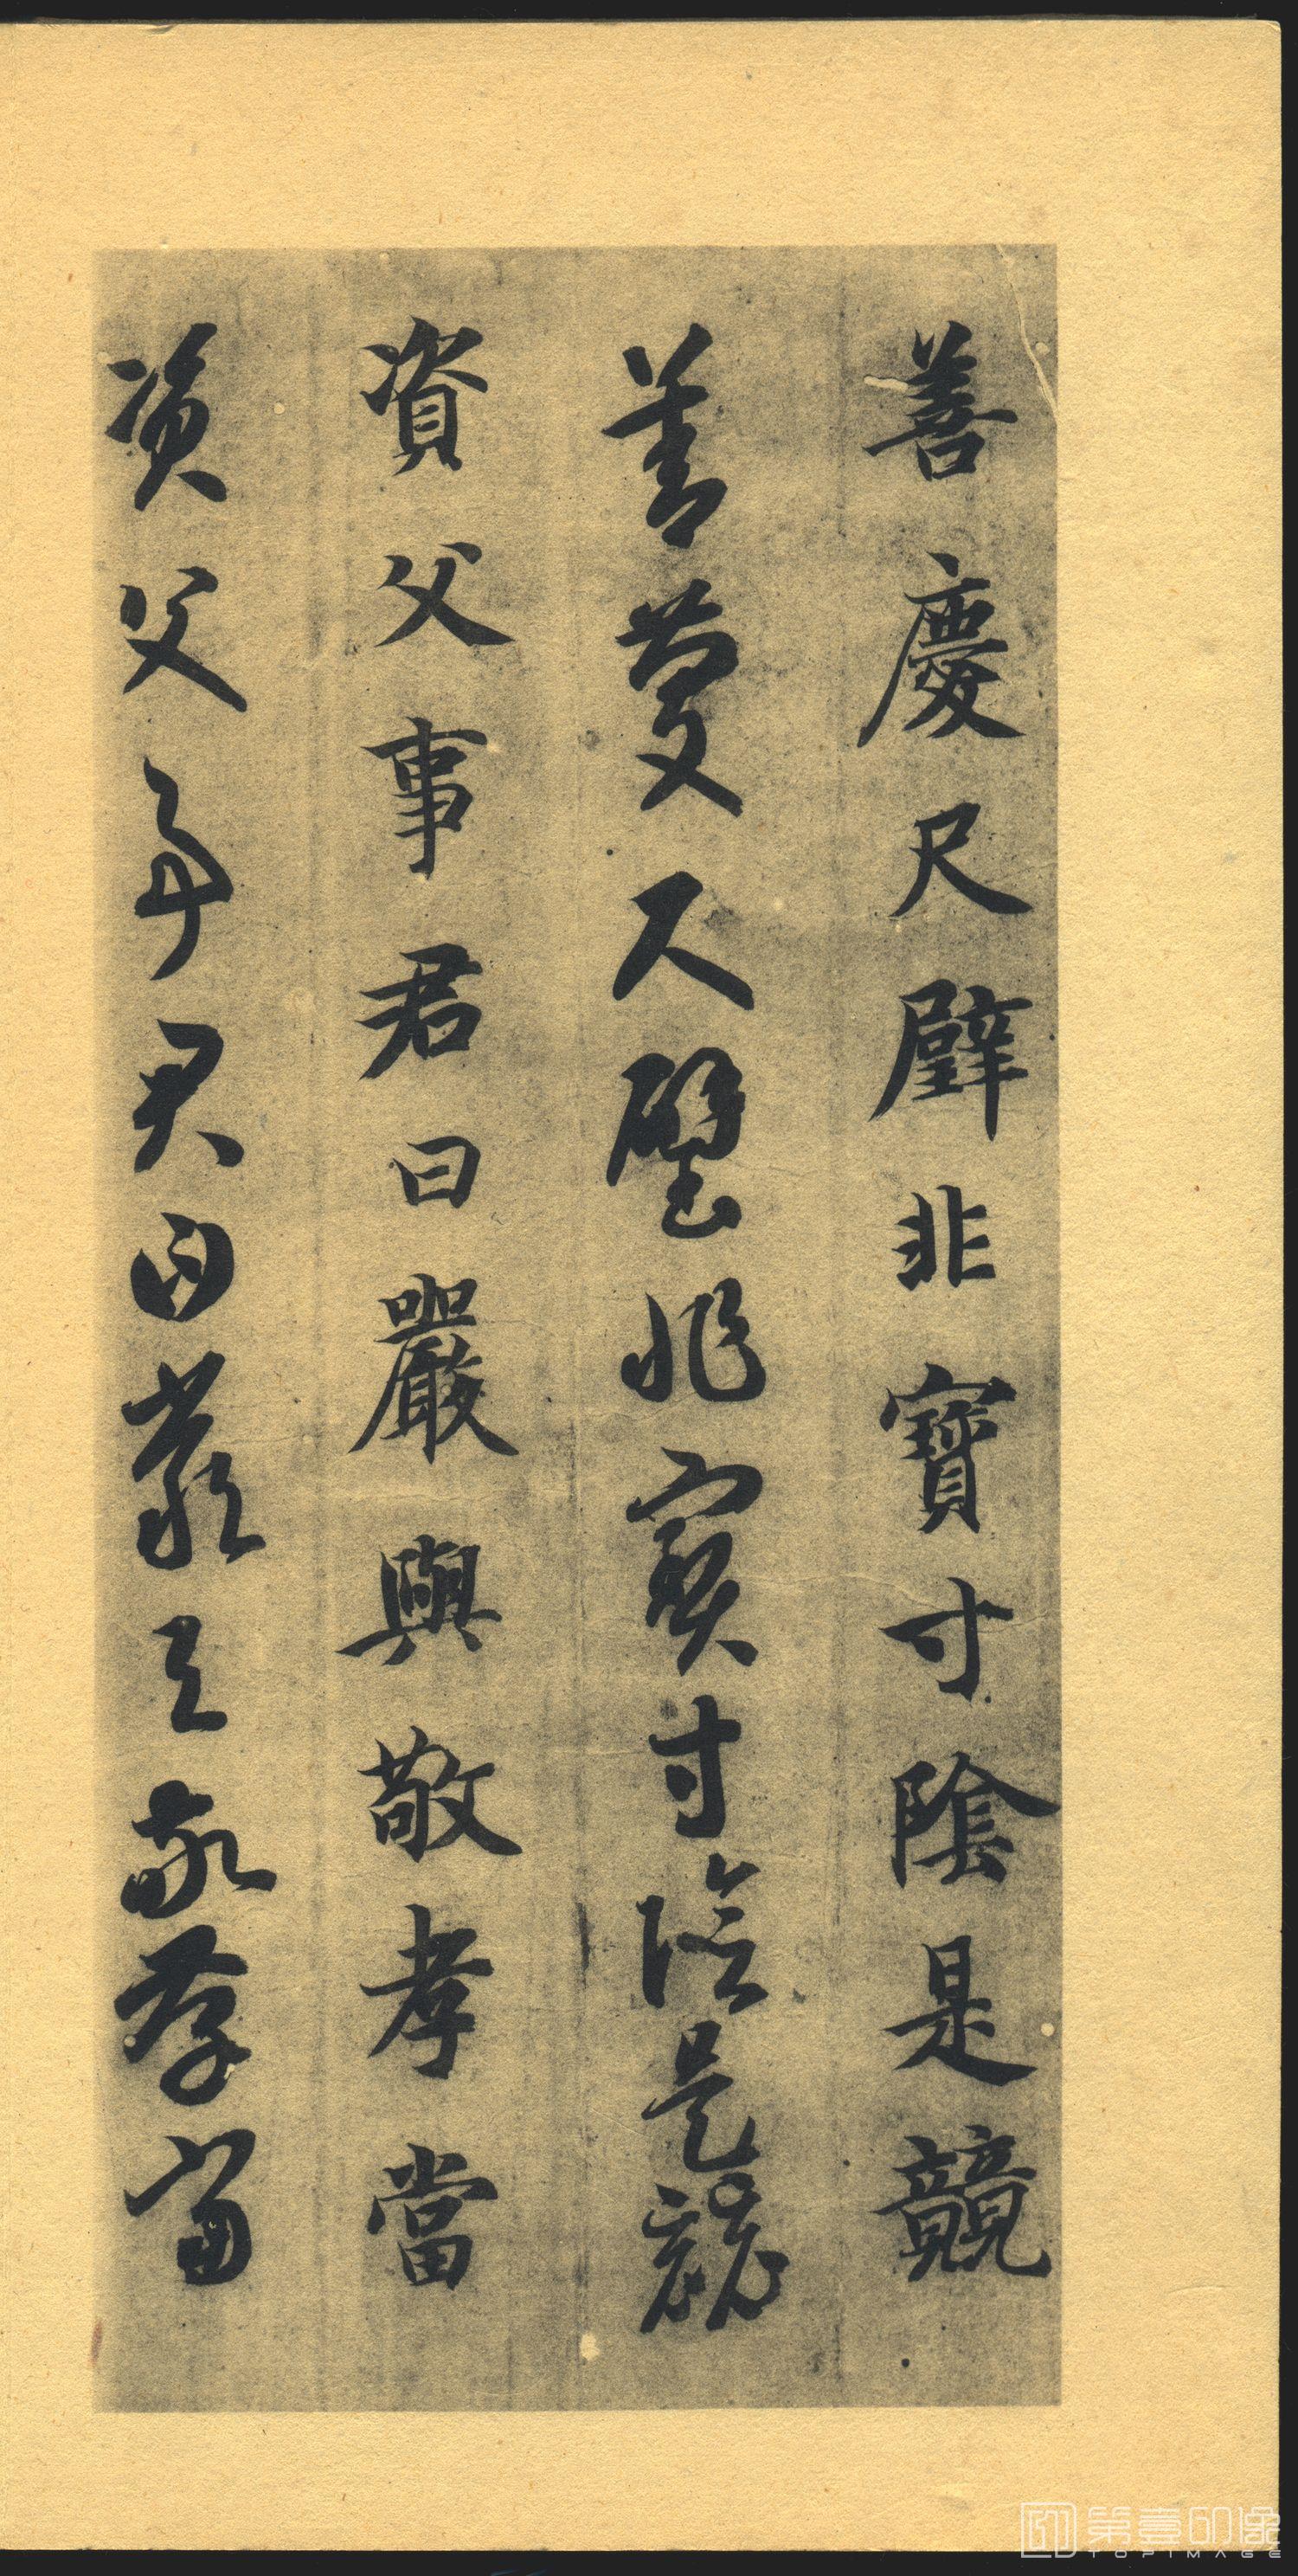 善慶尺璧非寶寸陰是競
善慶尺璧非寶寸陰是競
資父事君曰嚴與敬孝當
資父事君曰嚴与敬孝當
第壹印像
TOPIMAGE